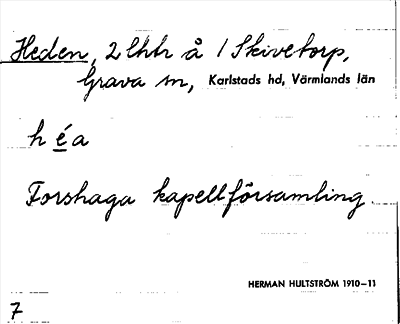 Heden, 2 lhh å 1 Skivetorp,
Grava sn, Karlstads hd, Värmlands län
h é a
Forshaga kapellförsamling
HERMAN HULTSTRÖM 1910–11
7